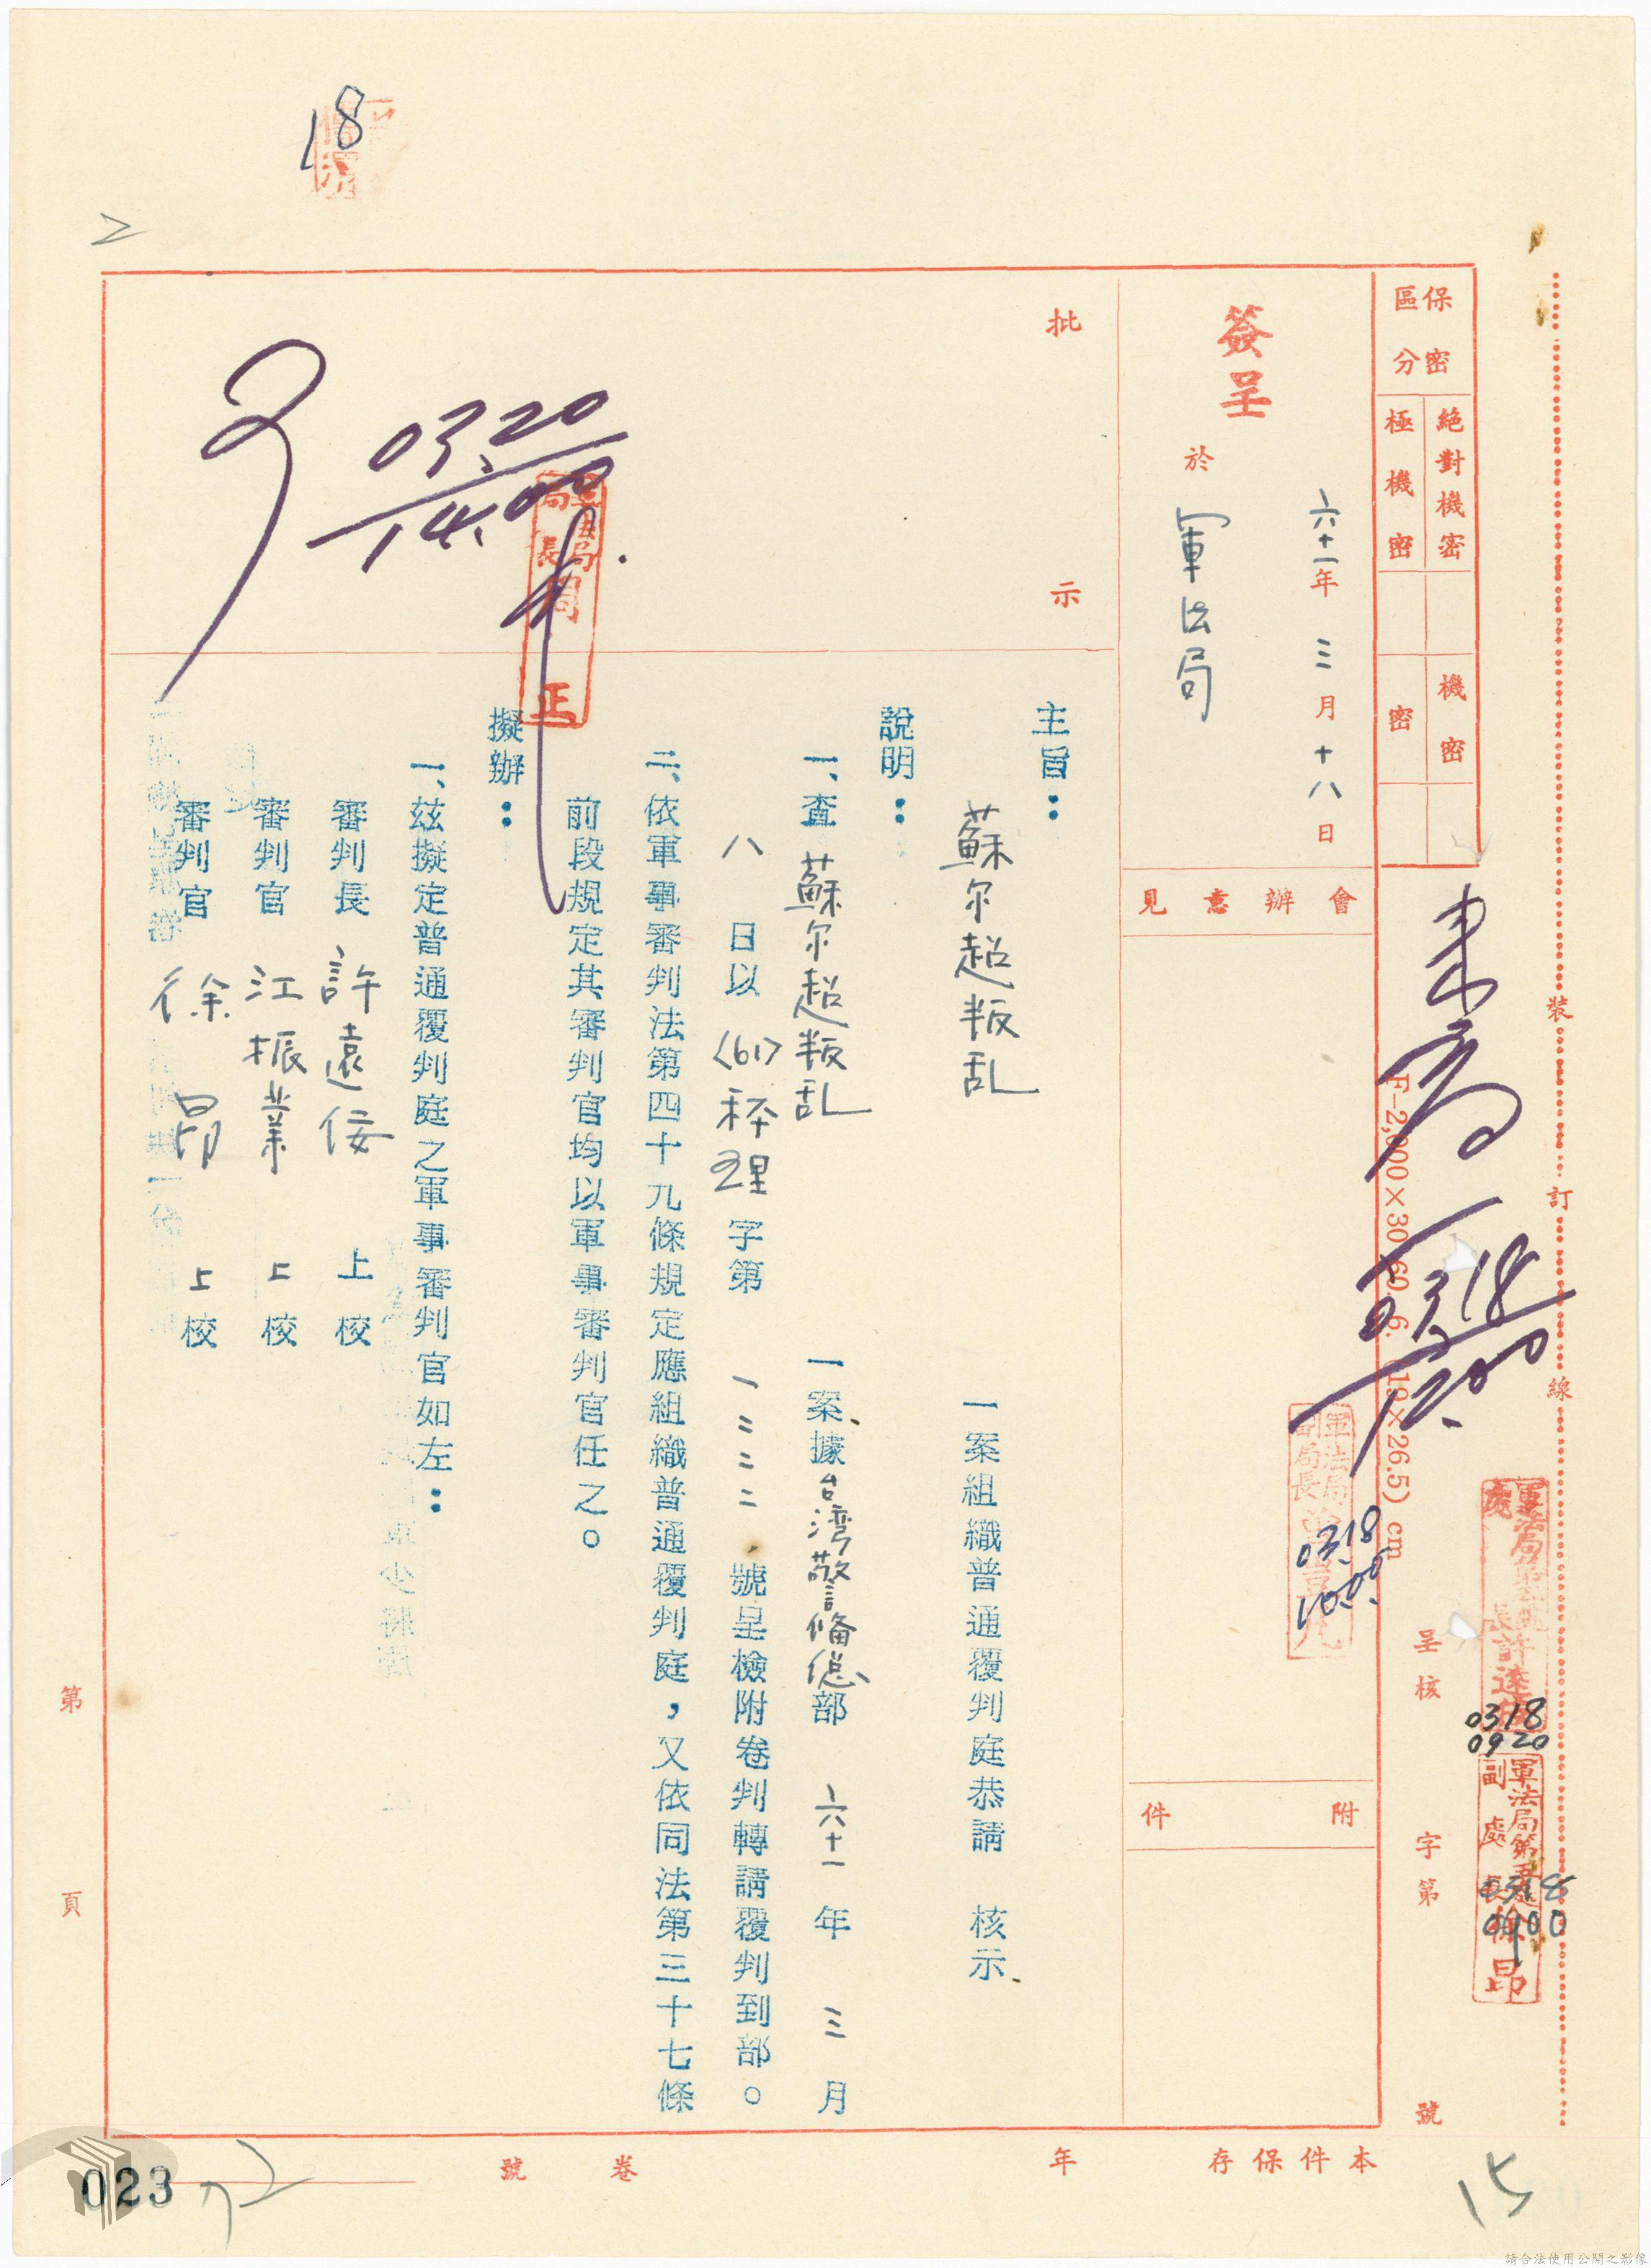 18
保密
區分
絕對機密
極機密
機密
密
簽呈
六十一年三月十八日
於
軍法局
會辦意見
附件
批示
03.20
14.00
軍法局
局長
周
正
主旨：
蘇尔超叛乱 一案組織普通覆判庭恭請 核示、
說明：
一、查蘇尔超叛乱 一案、據台湾警備總部 六十一年 三月
八 日以 (61)秤理字第 一三三二 號呈檢附卷判轉請覆判到部。
二、依軍事審判法第四十九條規定應組織普通覆判庭，又依同法第三十七條
前段規定其審判官均以軍事審判官任之。
擬辦：
一、玆擬定普通覆判庭之軍事審判官如左：
審判長 許遠倿 上校
審判官 江振業 上校
審判官 徐昂 上校
裝
訂
線
F-2,000×30
(19×26.5) cm
0318
1200
軍法局
副局長
0318
1000
呈核
字第
號
0318
0920
軍法局第五處
副處長徐昂
0318
0900
第
頁
本件保存
年
卷
號
023
15
請合法使用公開之影像